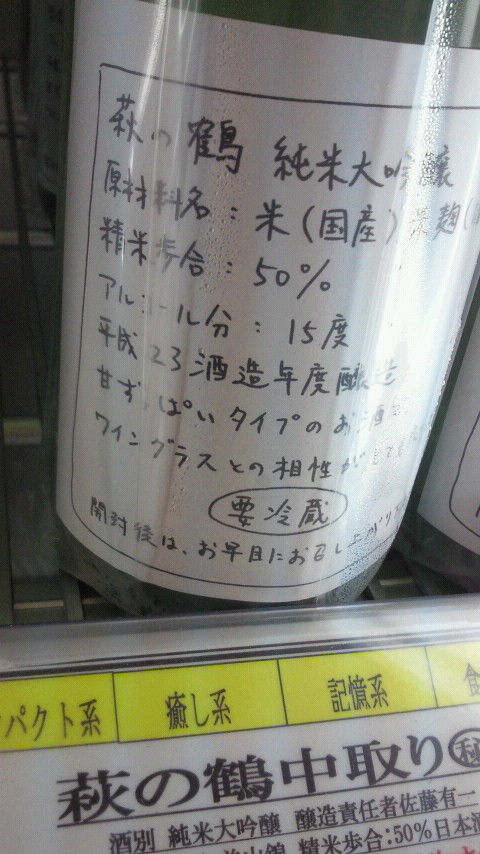 萩の鶴 純米大吟醸
原材料名：米（国産）米麹（
精米歩合：50%
アルコール分：15度
平成23酒造年度醸造
甘ずっぱいタイプのお酒
ワイングラスとの相性が
要冷蔵
開封後は、お早目にお召し上がり
パクト系 癒し系 記憶系
萩の鶴中取り㊙
酒別 純米大吟醸 醸造責任者佐藤有一
山錦 精米歩合：50%日本酒